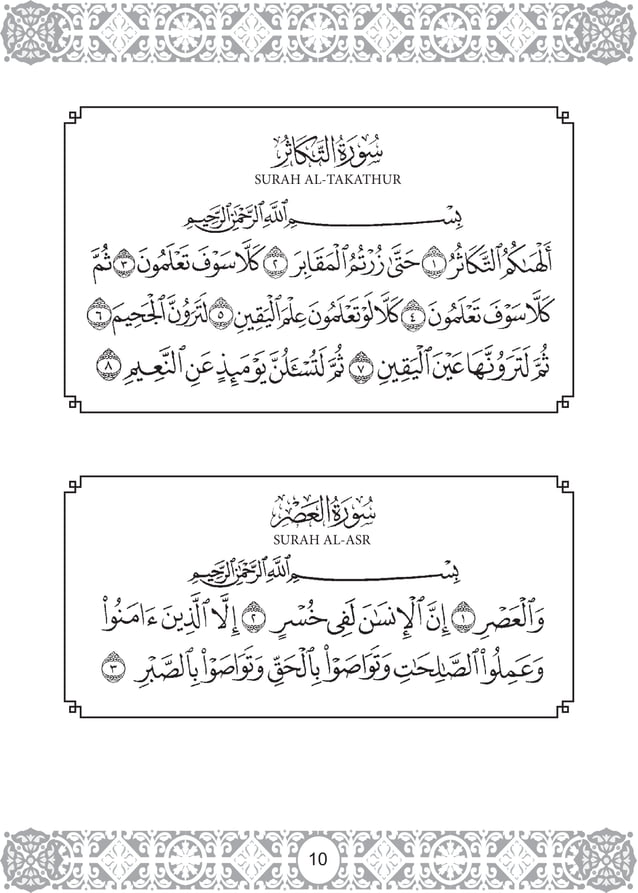 سُورَةُ التَّكَاثُرِ
SURAH AL-TAKATHUR
بِسْمِ ٱللَّهِ ٱلرَّحْمَٰنِ ٱلرَّحِيمِ
أَلْهَىٰكُمُ ٱلتَّكَاثُرُ ١ حَتَّىٰ زُرْتُمُ ٱلْمَقَابِرَ ٢ كَلَّا سَوْفَ تَعْلَمُونَ ٣ ثُمَّ
كَلَّا سَوْفَ تَعْلَمُونَ ٤ كَلَّا لَوْ تَعْلَمُونَ عِلْمَ ٱلْيَقِينِ ٥ لَتَرَوُنَّ ٱلْجَحِيمَ ٦
ثُمَّ لَتَرَوُنَّهَا عَيْنَ ٱلْيَقِينِ ٧ ثُمَّ لَتُسْـَٔلُنَّ يَوْمَئِذٍ عَنِ ٱلنَّعِيمِ ٨
سُورَةُ العَصْرِ
SURAH AL-ASR
بِسْمِ ٱللَّهِ ٱلرَّحْمَٰنِ ٱلرَّحِيمِ
وَٱلْعَصْرِ ١ إِنَّ ٱلْإِنسَٰنَ لَفِى خُسْرٍ ٢ إِلَّا ٱلَّذِينَ ءَامَنُوا۟
وَعَمِلُوا۟ ٱلصَّٰلِحَٰتِ وَتَوَاصَوْا۟ بِٱلْحَقِّ وَتَوَاصَوْا۟ بِٱلصَّبْرِ ٣
10